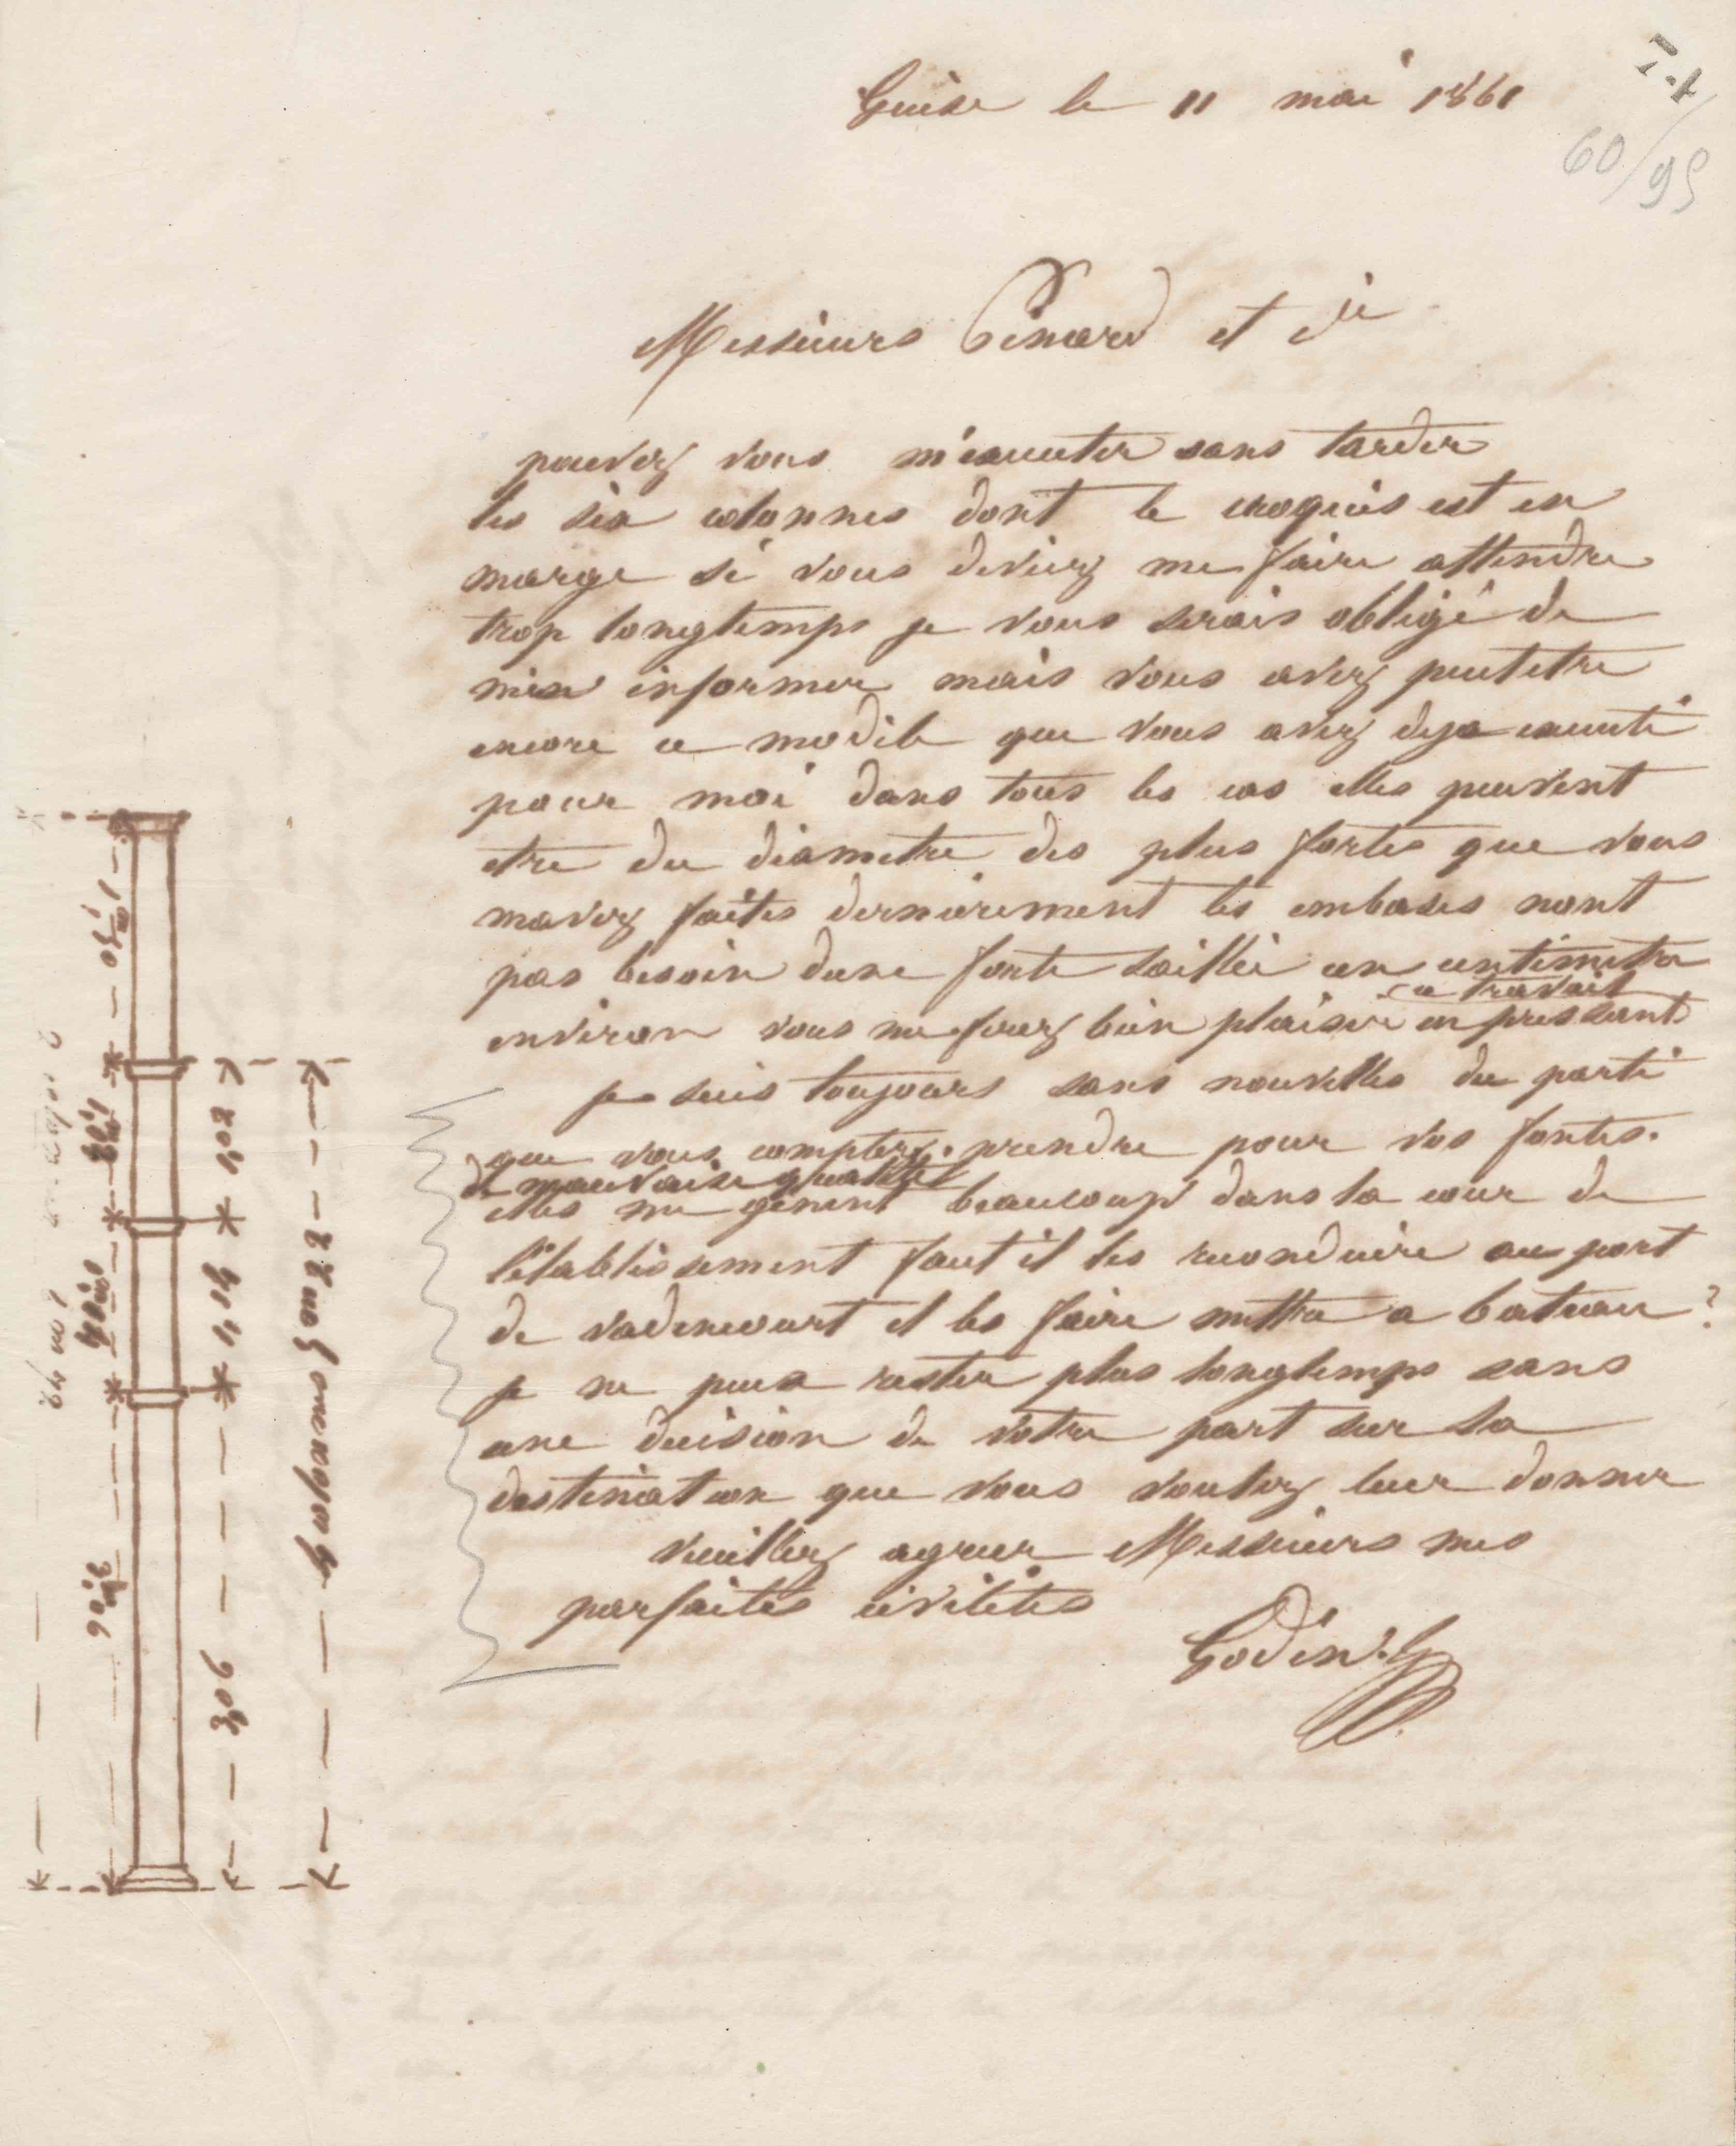 Guise le 11 mai 1861
60/95
Messieurs Penard et Cie
pouvez vous m'executer sans tarder
les six colonnes dont le croquis est en
marge si vous deviez me faire attendre
trop longtemps je vous serais obligé de
m'en informer mais vous avez peutetre
encore ce modele que vous avez deja executé
pour moi dans tous les cas elles peuvent
etre du diametre des plus fortes que vous
mavez faites dernièrement les embases nont
pas besoin dune forte saillie un centimetre
environ vous me ferez bien plaisir en pressant
ce travail
je suis toujours sans nouvelles du parti
que vous comptez prendre pour vos fontes.
de mauvaise qualité
elles me gènent beaucoup dans la cour de
l'établissement faut il les reconduire au port
de vadencourt et les faire mettre a bateau ?
je ne peux rester plus longtemps sans
une decision de votre part sur la
destination que vous voulez leur donner
veuillez agreer Messieurs mes
parfaites civilités
Godin
1,02
1,14
3,06
4 colonnes 5m22
3m06